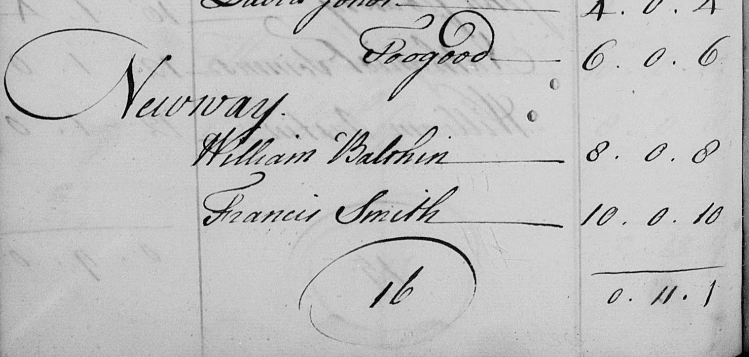 David Jones 4 . 0 . 4
Toogood 6 . 0 . 6
Newway.
William Baldwin 8 . 0 . 8
Francis Smith 10 . 0 . 10
16 0 . 11 . 1